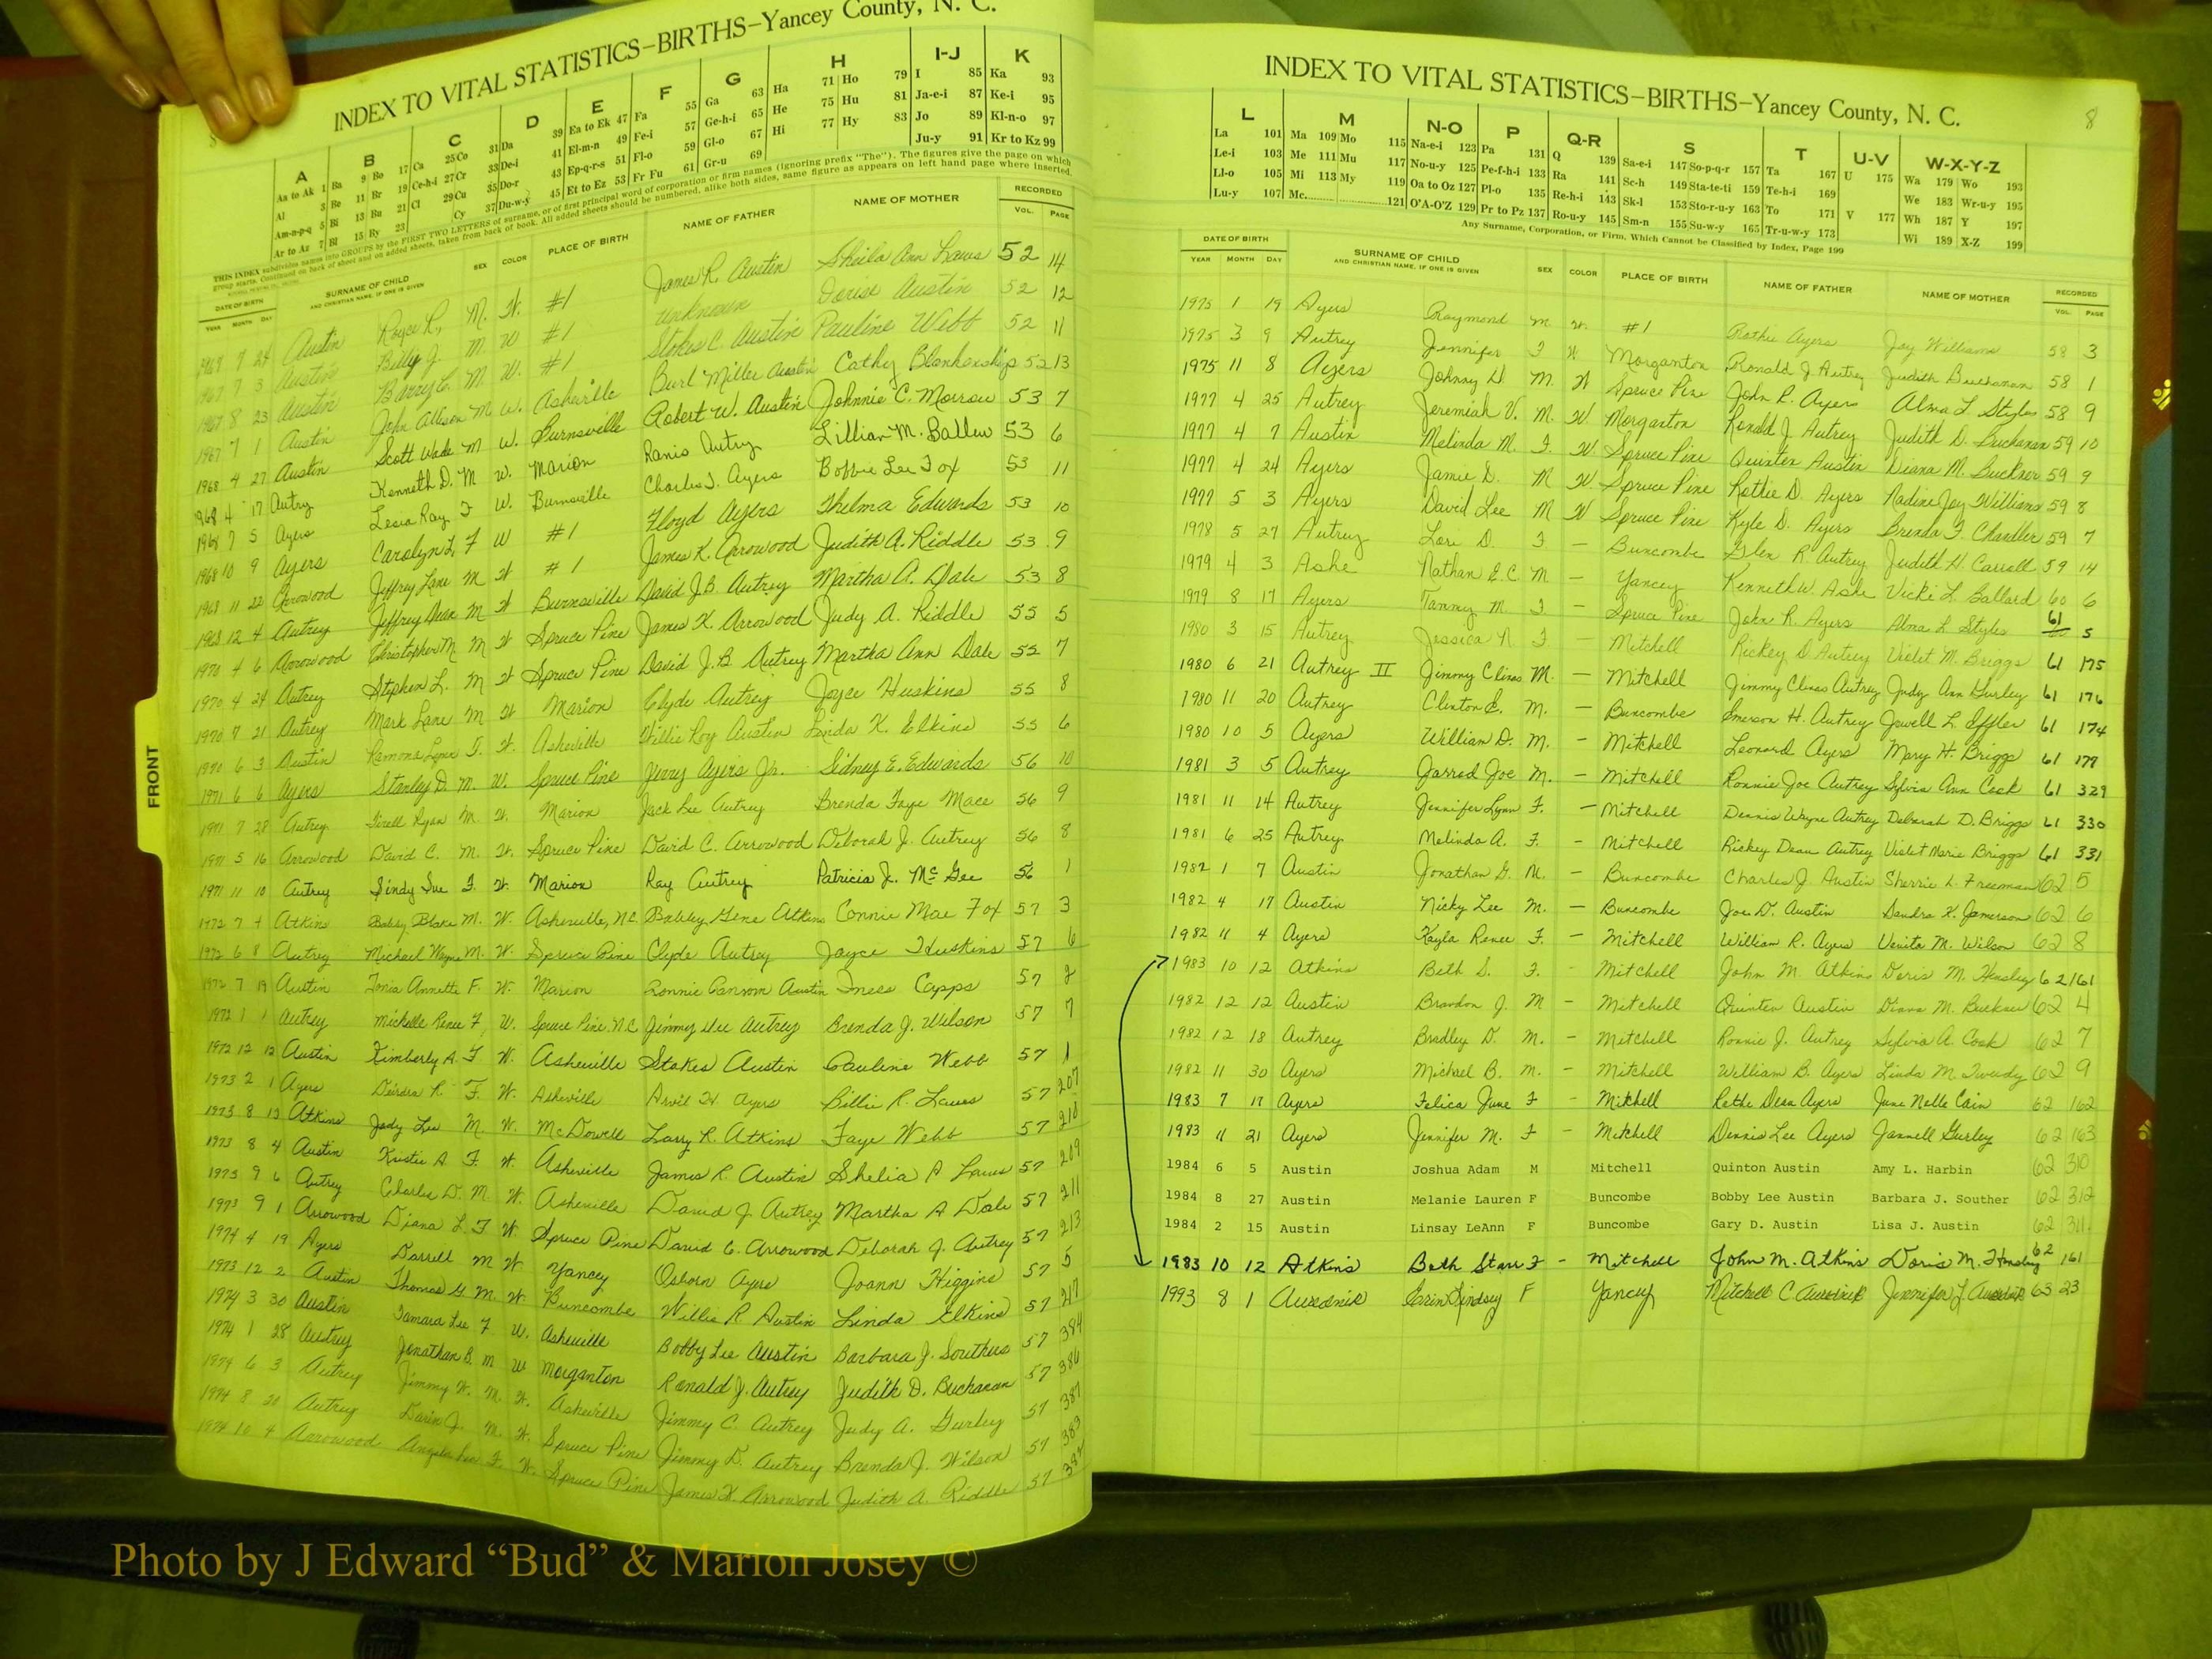 INDEX TO VITAL STATISTICS–BIRTHS–Yancey County, N. C.
A B C D E F G H I-J K
Aa to Ak 1 Ba 9 Bo 17 Ca 25 Co 31 Da 39 Ea to Ek 47 Fa 55 Ga 63 Ha 71 Ho 79 I 85 Ka 93
Al 3 Be 11 Br 19 Ce-h-i 27 Cr 33 De-i 41 El-m-n 49 Fe-i 57 Ge-h-i 65 He 75 Hu 81 Ja-e-i 87 Ke-i 95
Am-n-p-q 5 Bi 13 Bu 21 Cl 29 Cu 35 Do-r 43 Ep-q-r-s 51 Fl-o 59 Gl-o 67 Hi 77 Hy 83 Jo 89 Kl-n-o 97
Ar to Az 7 Bl 15 By 23 Cy 37 Du-w-y 45 Et to Ez 53 Fr Fu 61 Gr-u 69 Ju-y 91 Kr to Kz 99
THIS INDEX subdivides names into GROUPS by the FIRST TWO LETTERS of surname, or of first principal word of corporation or firm names (ignoring prefix "The"). The figures give the page on which
group starts. Continued on back of sheet and on added sheets, taken from back of book. All added sheets should be numbered, alike both sides, same figure as appears on left hand page where inserted.
DATE OF BIRTH SURNAME OF CHILD SEX COLOR PLACE OF BIRTH NAME OF FATHER NAME OF MOTHER RECORDED
YEAR MONTH DAY AND CHRISTIAN NAME, IF ONE IS GIVEN VOL. PAGE
7 24 Austin Royce L. M. W. #1 James R. Austin Sheila Ann Laws 52 14
1967 7 3 Austin Billy J. M W #1 unknown Austin 52 12
1967 8 23 Austin Barry C. M. W. #1 Stokes C. Austin Pauline Webb 52 11
1967 7 1 Austin John Allison M. W. Asheville Burl Miller Austin Cathy Blankenship 52 13
1968 4 27 Austin Scott Wade M W. Burnsville Robert W. Austin Johnnie C. Morrow 53 7
1968 4 17 Autry Kenneth D. M W. Marion Autry Lillian M. Ballew 53 6
1968 7 5 Ayers Lesia Ray F W. Burnsville Charles J. Ayers Bobbie Lee Fox 53 11
1968 10 9 Ayers Carolyn L. F W #1 Floyd Ayers Thelma Edwards 53 10
1968 11 22 Arrowood Jeffrey Lane M W #1 James K. Arrowood Judith A. Riddle 53 9
1968 12 4 Autrey Jeffrey Dean M W Burnsville David J.B. Autrey Martha A. Dale 53 8
1970 4 6 Arrowood Christopher M M W Spruce Pine James K. Arrowood Judy A. Riddle 55 5
1970 4 24 Autrey Stephen L. M W Spruce Pine David J.B. Autrey Martha Ann Dale 55 7
1970 7 21 Autrey Mark Lane M W Marion Clyde Autrey Joyce Huskins 55 8
1970 6 3 Austin Ramona Lynn F. W. Asheville Willie Roy Austin Linda K. Elkins 55 6
1971 6 6 Ayers Stanley D. M. W. Spruce Pine Jerry Ayers Jr. Sidney E. Edwards 56 10
1971 7 28 Autrey Tirell Ryan M. W. Marion Jack Lee Autrey Brenda Faye Mace 56 9
1971 5 16 Arrowood David C. M. W. Spruce Pine David C. Arrowood Deborah J. Autrey 56 8
1971 11 10 Autrey Sindy Sue F. W. Marion Ray Autrey Patricia J. McGee 56 1
1972 7 4 Atkins Bobby Blake M. W. Asheville, N.C. Bobby Gene Atkins Connie Mae Fox 57 3
1972 6 8 Autrey Michael Wayne M. W. Spruce Pine Clyde Autrey Joyce Huskins 57 6
1972 7 19 Austin Tonia Annette F. W. Marion Ronnie Ransom Austin Iness Capps 57 2
1972 1 1 Autrey Michelle Renee F. W. Spruce Pine N.C. Jimmy Dee Autrey Brenda J. Wilson 57 7
1972 12 12 Austin Kimberly A. F W. Asheville Stokes Austin Pauline Webb 57 1
1973 2 1 Ayers Deidra R. F. W. Asheville Arvil H. Ayers Billie R. Laws 57 207
1973 8 13 Atkins Jody Lee M W. McDowell Larry R. Atkins Faye Webb 57 210
1973 8 4 Austin Kristie A F. W. Asheville James R. Austin Shelia A Laws 57 209
1973 9 6 Autrey Charles D. M. W. Asheville David J. Autrey Martha A Dale 57 211
1973 9 1 Arrowood Diana L. F W. Spruce Pine David C. Arrowood Deborah J. Autrey 57 213
1974 4 19 Ayers Darrell M W Yancey Osborn Ayers Joann Higgins 57 5
1973 12 2 Austin Thomas G. M. W. Buncombe Willie R Austin Linda Elkins 57 217
1974 3 30 Austin Tamara Lee F W. Asheville Bobby Lee Austin Barbara J. Southers 57 384
1974 1 28 Autrey Jonathan B. M W Morganton Ronald J. Autrey Judith D. Buchanan 57 386
1974 6 3 Autrey Jimmy W. M. W. Asheville Jimmy C. Autrey Judy A. Gurley 57 387
1974 8 20 Autrey Darin J. M. W. Spruce Pine Jimmy D. Autrey Brenda J. Wilson 57 383
1974 10 4 Arrowood Angela F. W. Spruce Pine James K. Arrowood Judith A. Riddle 57
FRONT
INDEX TO VITAL STATISTICS–BIRTHS–Yancey County, N. C.
8
L M N-O P Q-R S T U-V W-X-Y-Z
La 101 Ma 109 Mo 115 Na-e-i 123 Pa 131 Q 139 Sa-e-i 147 So-p-q-r 157 Ta 167 U 175 Wa 179 Wo 193
Le-i 103 Me 111 Mu 117 No-u-y 125 Pe-f-h-i 133 Ra 141 Sc-h 149 Sta-te-ti 159 Te-h-i 169 We 183 Wr-u-y 195
Ll-o 105 Mi 113 My 119 Oa to Oz 127 Pl-o 135 Re-h-i 143 Sk-l 153 Sto-r-u-y 163 To 171 V 177 Wh 187 Y 197
Lu-y 107 Mc 121 O'A-O'Z 129 Pr to Pz 137 Ro-u-y 145 Sm-n 155 Su-w-y 165 Tr-u-w-y 173 Wi 189 X-Z 199
Any Surname, Corporation, or Firm, Which Cannot be Classified by Index, Page 199
DATE OF BIRTH SURNAME OF CHILD SEX COLOR PLACE OF BIRTH NAME OF FATHER NAME OF MOTHER RECORDED
YEAR MONTH DAY AND CHRISTIAN NAME, IF ONE IS GIVEN VOL. PAGE
1975 1 19 Ayers Raymond M W. #1 Rathie Ayers Joy Williams 58 3
1975 3 9 Autrey Jennifer F W Morganton Ronald J Autrey Judith Buchanan 58 1
1975 11 8 Ayers Johnny D. M. W Spruce Pine John R. Ayers Alma L. Styles 58 9
1977 4 25 Autrey Jeremiah V. M. W. Morganton Ronald J. Autrey Judith D. Buchanan 59 10
1977 4 7 Austin Melinda M. F. W. Spruce Pine Quinten Austin Diana M. Buckner 59 9
1977 4 24 Ayers Jamie D. M W Spruce Pine Rathie D. Ayers Nadine Joy Williams 59 8
1977 5 3 Ayers David Lee M W Spruce Pine Kyle D. Ayers Brenda F. Chandler 59 7
1978 5 27 Autrey Lori D. F – Buncombe Glen R. Autrey Judith H. Carroll 59 14
1979 4 3 Ashe Nathan E.C. M – Yancey Kenneth W. Ashe Vicki L. Ballard 60 6
1979 8 17 Ayers Tammy M. F – Spruce Pine John R. Ayers Alma L Styles 61 5
1980 3 15 Autrey Jessica N. F – Mitchell Rickey D Autrey Violet M. Briggs 61 175
1980 6 21 Autrey II Jimmy Clines M. – Mitchell Jimmy Clines Autrey Judy Ann Gurley 61 176
1980 11 20 Autrey Clinton E. M. – Buncombe Emerson H. Autrey Jewell L. Effler 61 174
1980 10 5 Ayers William D. M. – Mitchell Leonard Ayers Mary H. Briggs 61 179
1981 3 5 Autrey Jarrod Joe M. – Mitchell Ronnie Joe Autrey Sylvia Ann Cook 61 329
1981 11 14 Autrey Jennifer Lynn F. – Mitchell Dennis Wayne Autrey Deborah D. Briggs 61 330
1981 6 25 Autrey Melinda A. F. – Mitchell Rickey Dean Autrey Violet Marie Briggs 61 331
1982 1 7 Austin Jonathan G. M. – Buncombe Charles J. Austin Sherrie L. Freeman 62 5
1982 4 17 Austin Nicky Lee M. – Buncombe Joe D. Austin Sandra K. Jamerson 62 6
1982 11 4 Ayers Kayla Renee F. – Mitchell William R. Ayers Venita M. Wilson 62 8
1983 10 12 Atkins Beth S. F. – Mitchell John M. Atkins Doris M. Hensley 62 161
1982 12 12 Austin Brandon J. M – Mitchell Quinten Austin Diana M. Buckner 62 4
1982 12 18 Autrey Bradley D. M. – Mitchell Ronnie J. Autrey Sylvia A. Cook 62 7
1982 11 30 Ayers Michael B. M. – Mitchell William B. Ayers Linda M. Tweedy 62 9
1983 7 17 Ayers Felica June F – Mitchell Rathe Dean Ayers June Nelle Cain 62 162
1983 11 21 Ayers Jennifer M. F – Mitchell Dennis Lee Ayers Jannell Gurley 62 163
1984 6 5 Austin Joshua Adam M Mitchell Quinton Austin Amy L. Harbin 62 310
1984 8 27 Austin Melanie Lauren F Buncombe Bobby Lee Austin Barbara J. Souther 62 312
1984 2 15 Austin Linsay LeAnn F Buncombe Gary D. Austin Lisa J. Austin 62 311
1983 10 12 Atkins Beth Starr F – Mitchell John M. Atkins Doris M. Hensley 62 161
1993 8 1 Aurednik Lindsey F Yancey Mitchell C Aurednik Jennifer J. Aurednik 63 23
Photo by J Edward “Bud” & Marion Josey ©